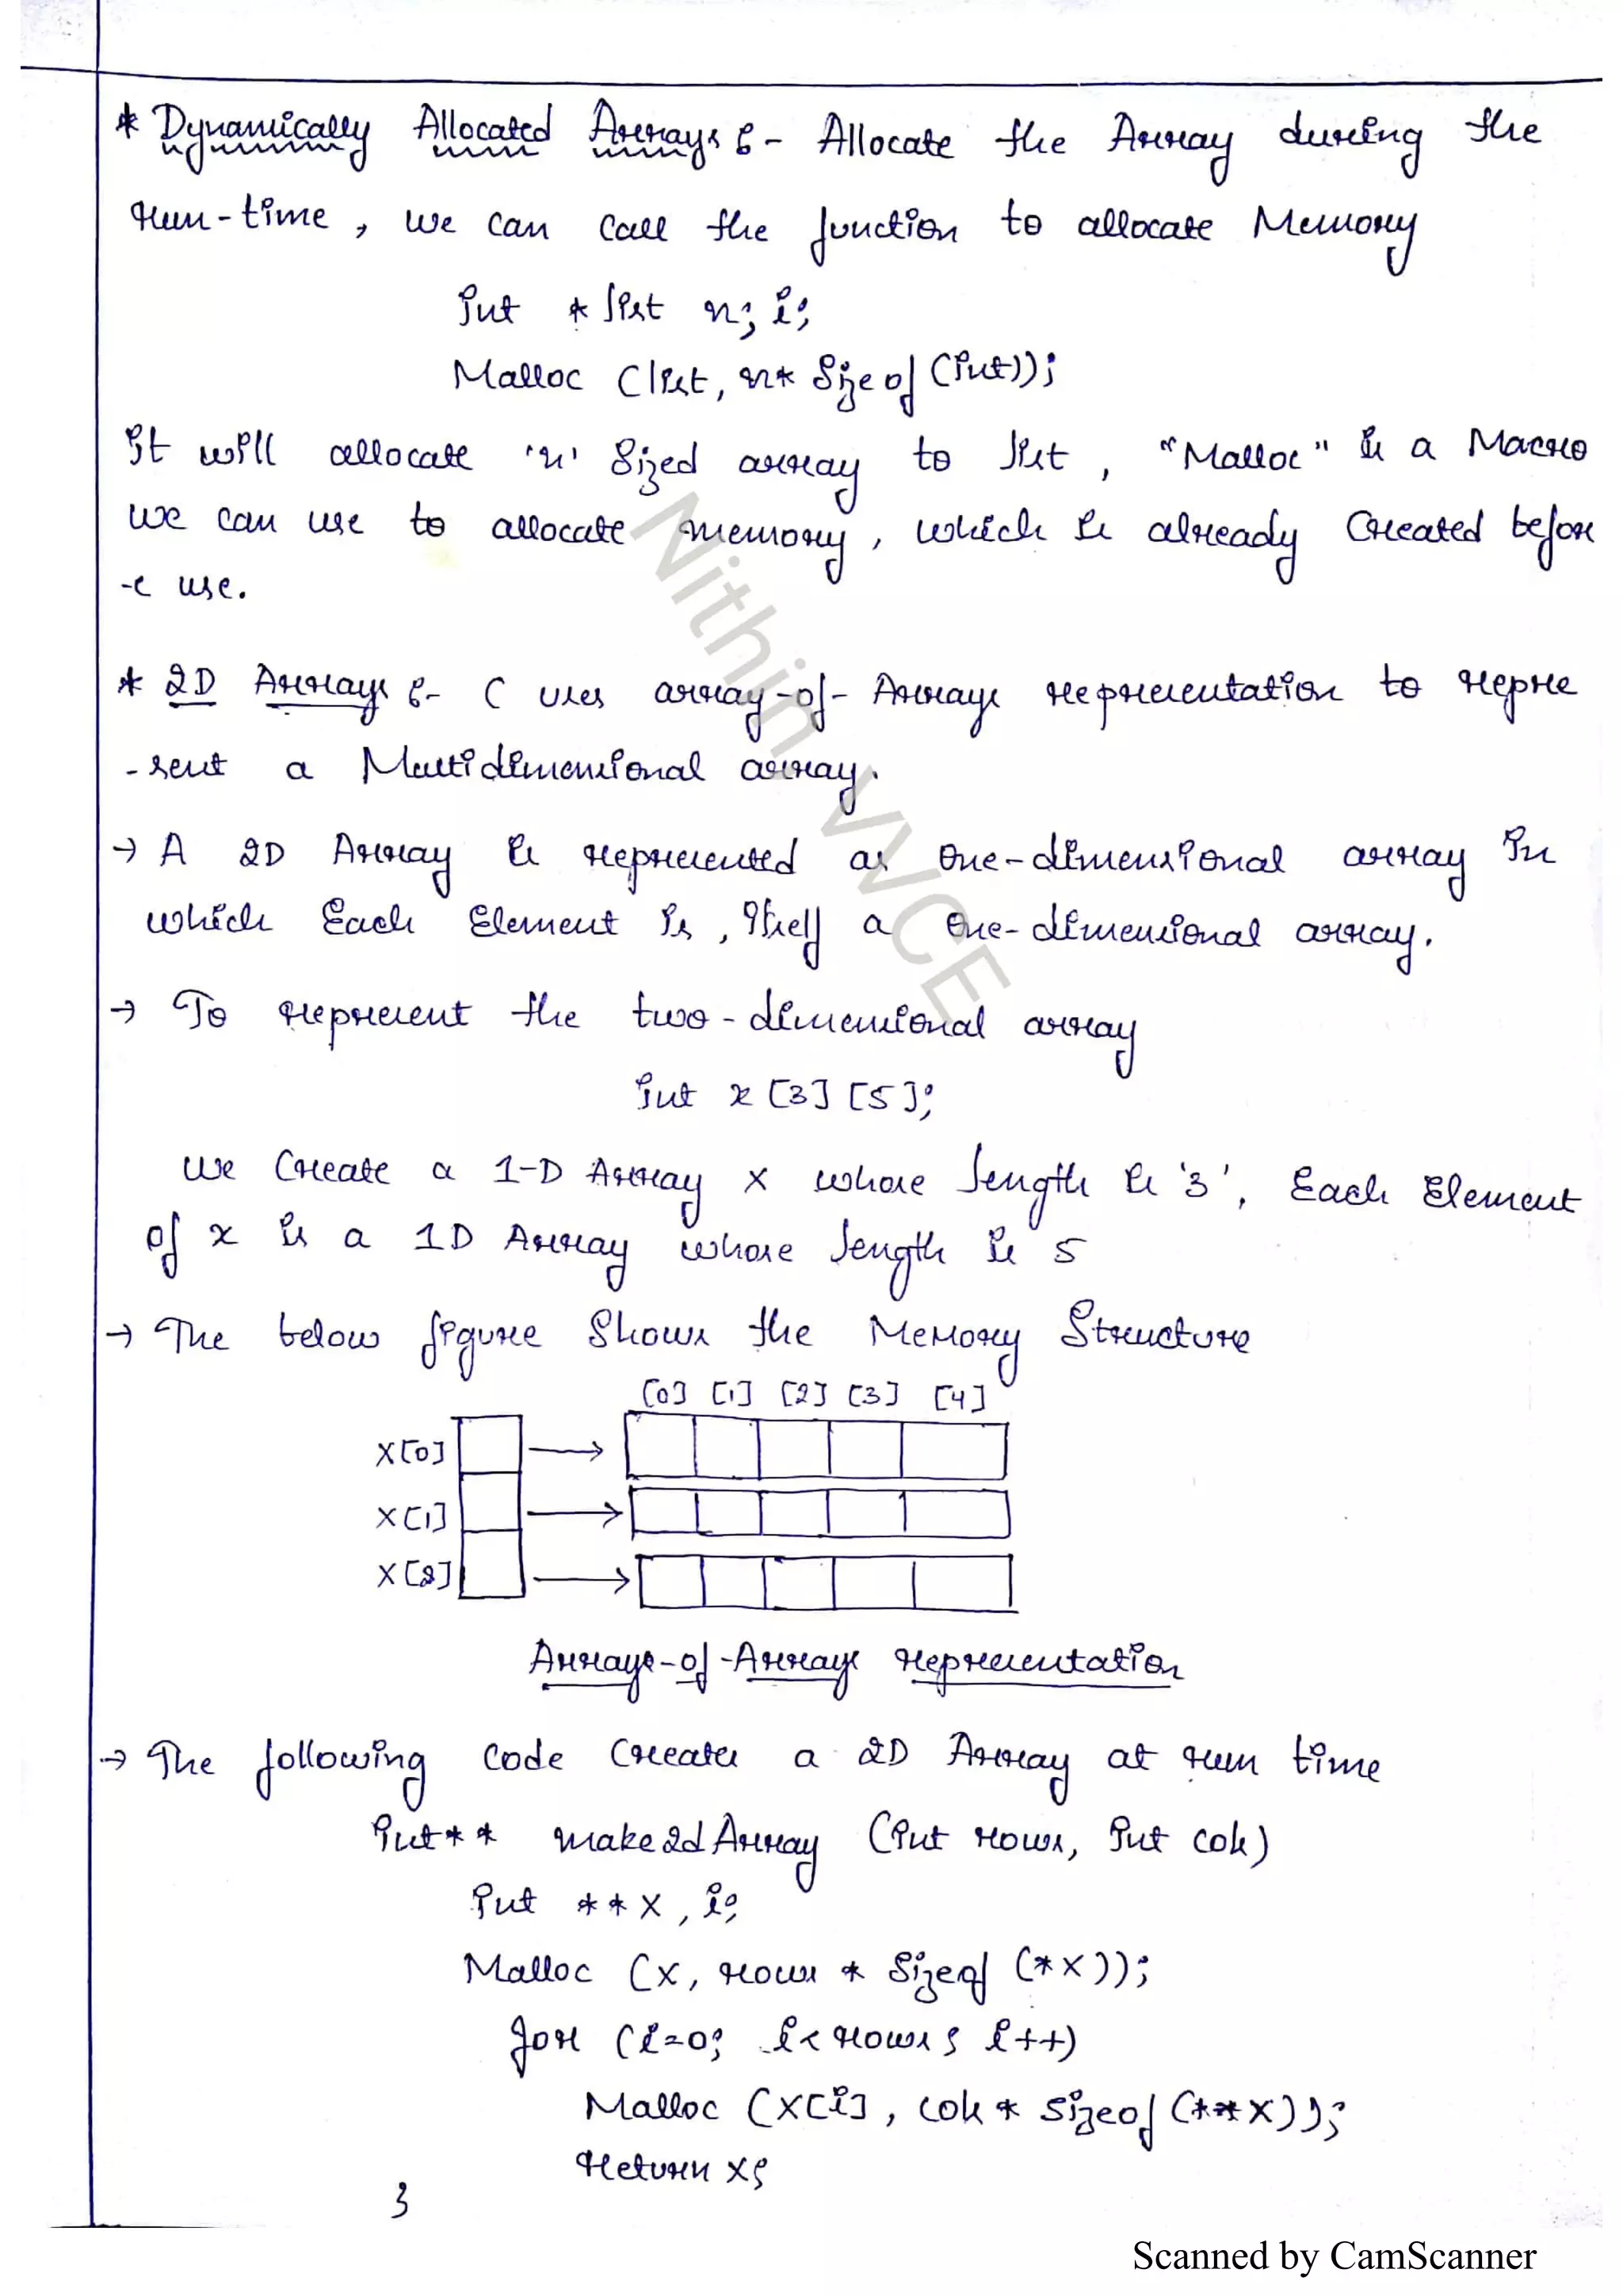 * Dynamically Allocated Arrays :- Allocate the Array during the
run-time, we can call the function to allocate Memory
int * list n; i;
Malloc (list, n* Sizeof (int));
It will allocate 'n' Sized array to list, "Malloc" is a Macro
we can use to allocate memory, which is already Created befor
-e use.
* 2D Arrays :- C uses array-of-Arrays representation to repre
-sent a Multidimensional array.
→ A 2D Array is represented as one-dimensional array in
which Each Element is, itself a one-dimensional array.
→ To represent the two-dimensional array
int x [3] [5];
we Create a 1-D Array x whose length is '3', Each Element
of x is a 1D Array whose length is 5
→ The below figure Shows the Memory Structure
[0] [1] [2] [3] [4]
X[0]
X[1]
X[2]
Arrays-of-Arrays representation
→ The following Code Creates a 2D Array at run time
int** make2dArray (int rows, int cols)
int **x, i;
Malloc (x, rows * Sizeof (*x));
for (i=0; i<rows; i++)
Malloc (x[i], cols * sizeof (**x));
return x;
}
Nithin VVCE
Scanned by CamScanner